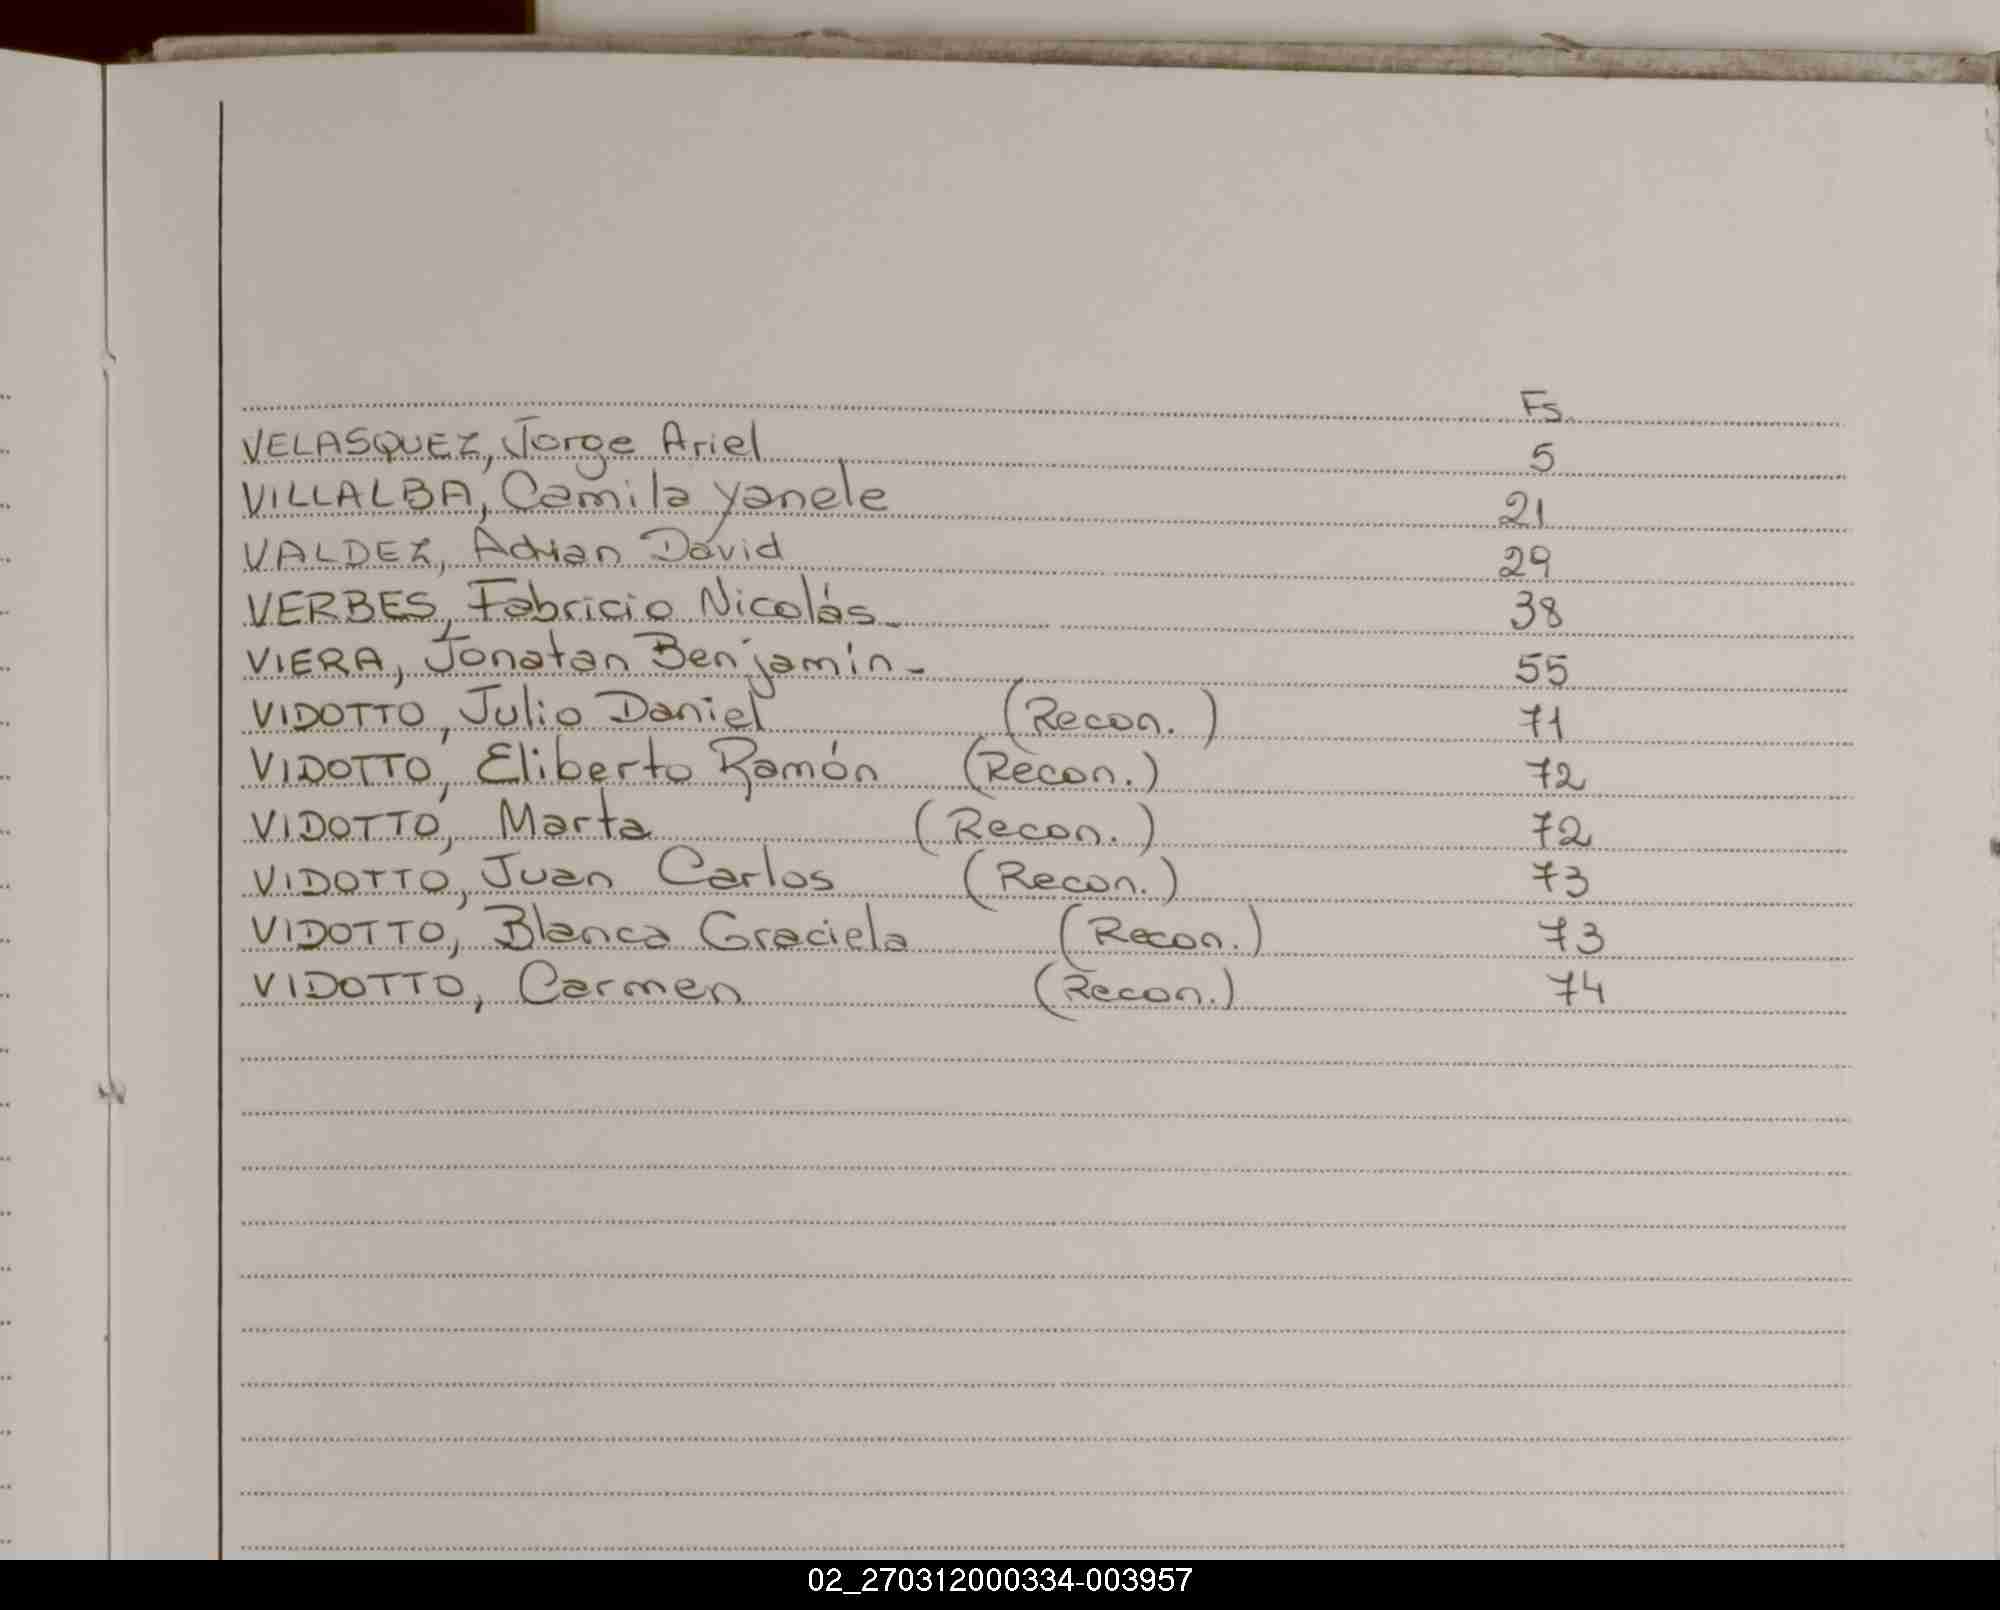 Fs.
VELASQUEZ, Jorge Ariel 5
VILLALBA, Camila Yanele 21
VALDEZ, Adrian David 29
VERBES, Fabricio Nicolás. 38
VIERA, Jonatan Benjamín.- 55
VIDOTTO, Julio Daniel (Recon.) 71
VIDOTTO, Eliberto Ramón (Recon.) 72
VIDOTTO, Marta (Recon.) 72
VIDOTTO, Juan Carlos (Recon.) 73
VIDOTTO, Blanca Graciela (Recon.) 73
VIDOTTO, Carmen (Recon.) 74
02_270312000334-003957